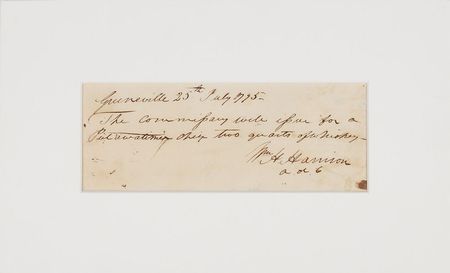 Greeneville 25th July 1795-
The commissary will issue for a
Putawatimie chief two quarts of whiskey-
Wm H. Harrison
a d C